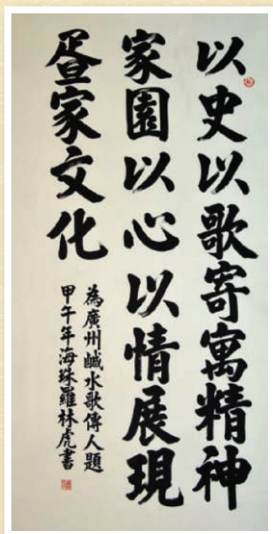 以史以歌寄寓精神
家園以心以情展現
疍家文化
為廣州鹹水歌傳人題
甲午年海珠羅林虎書